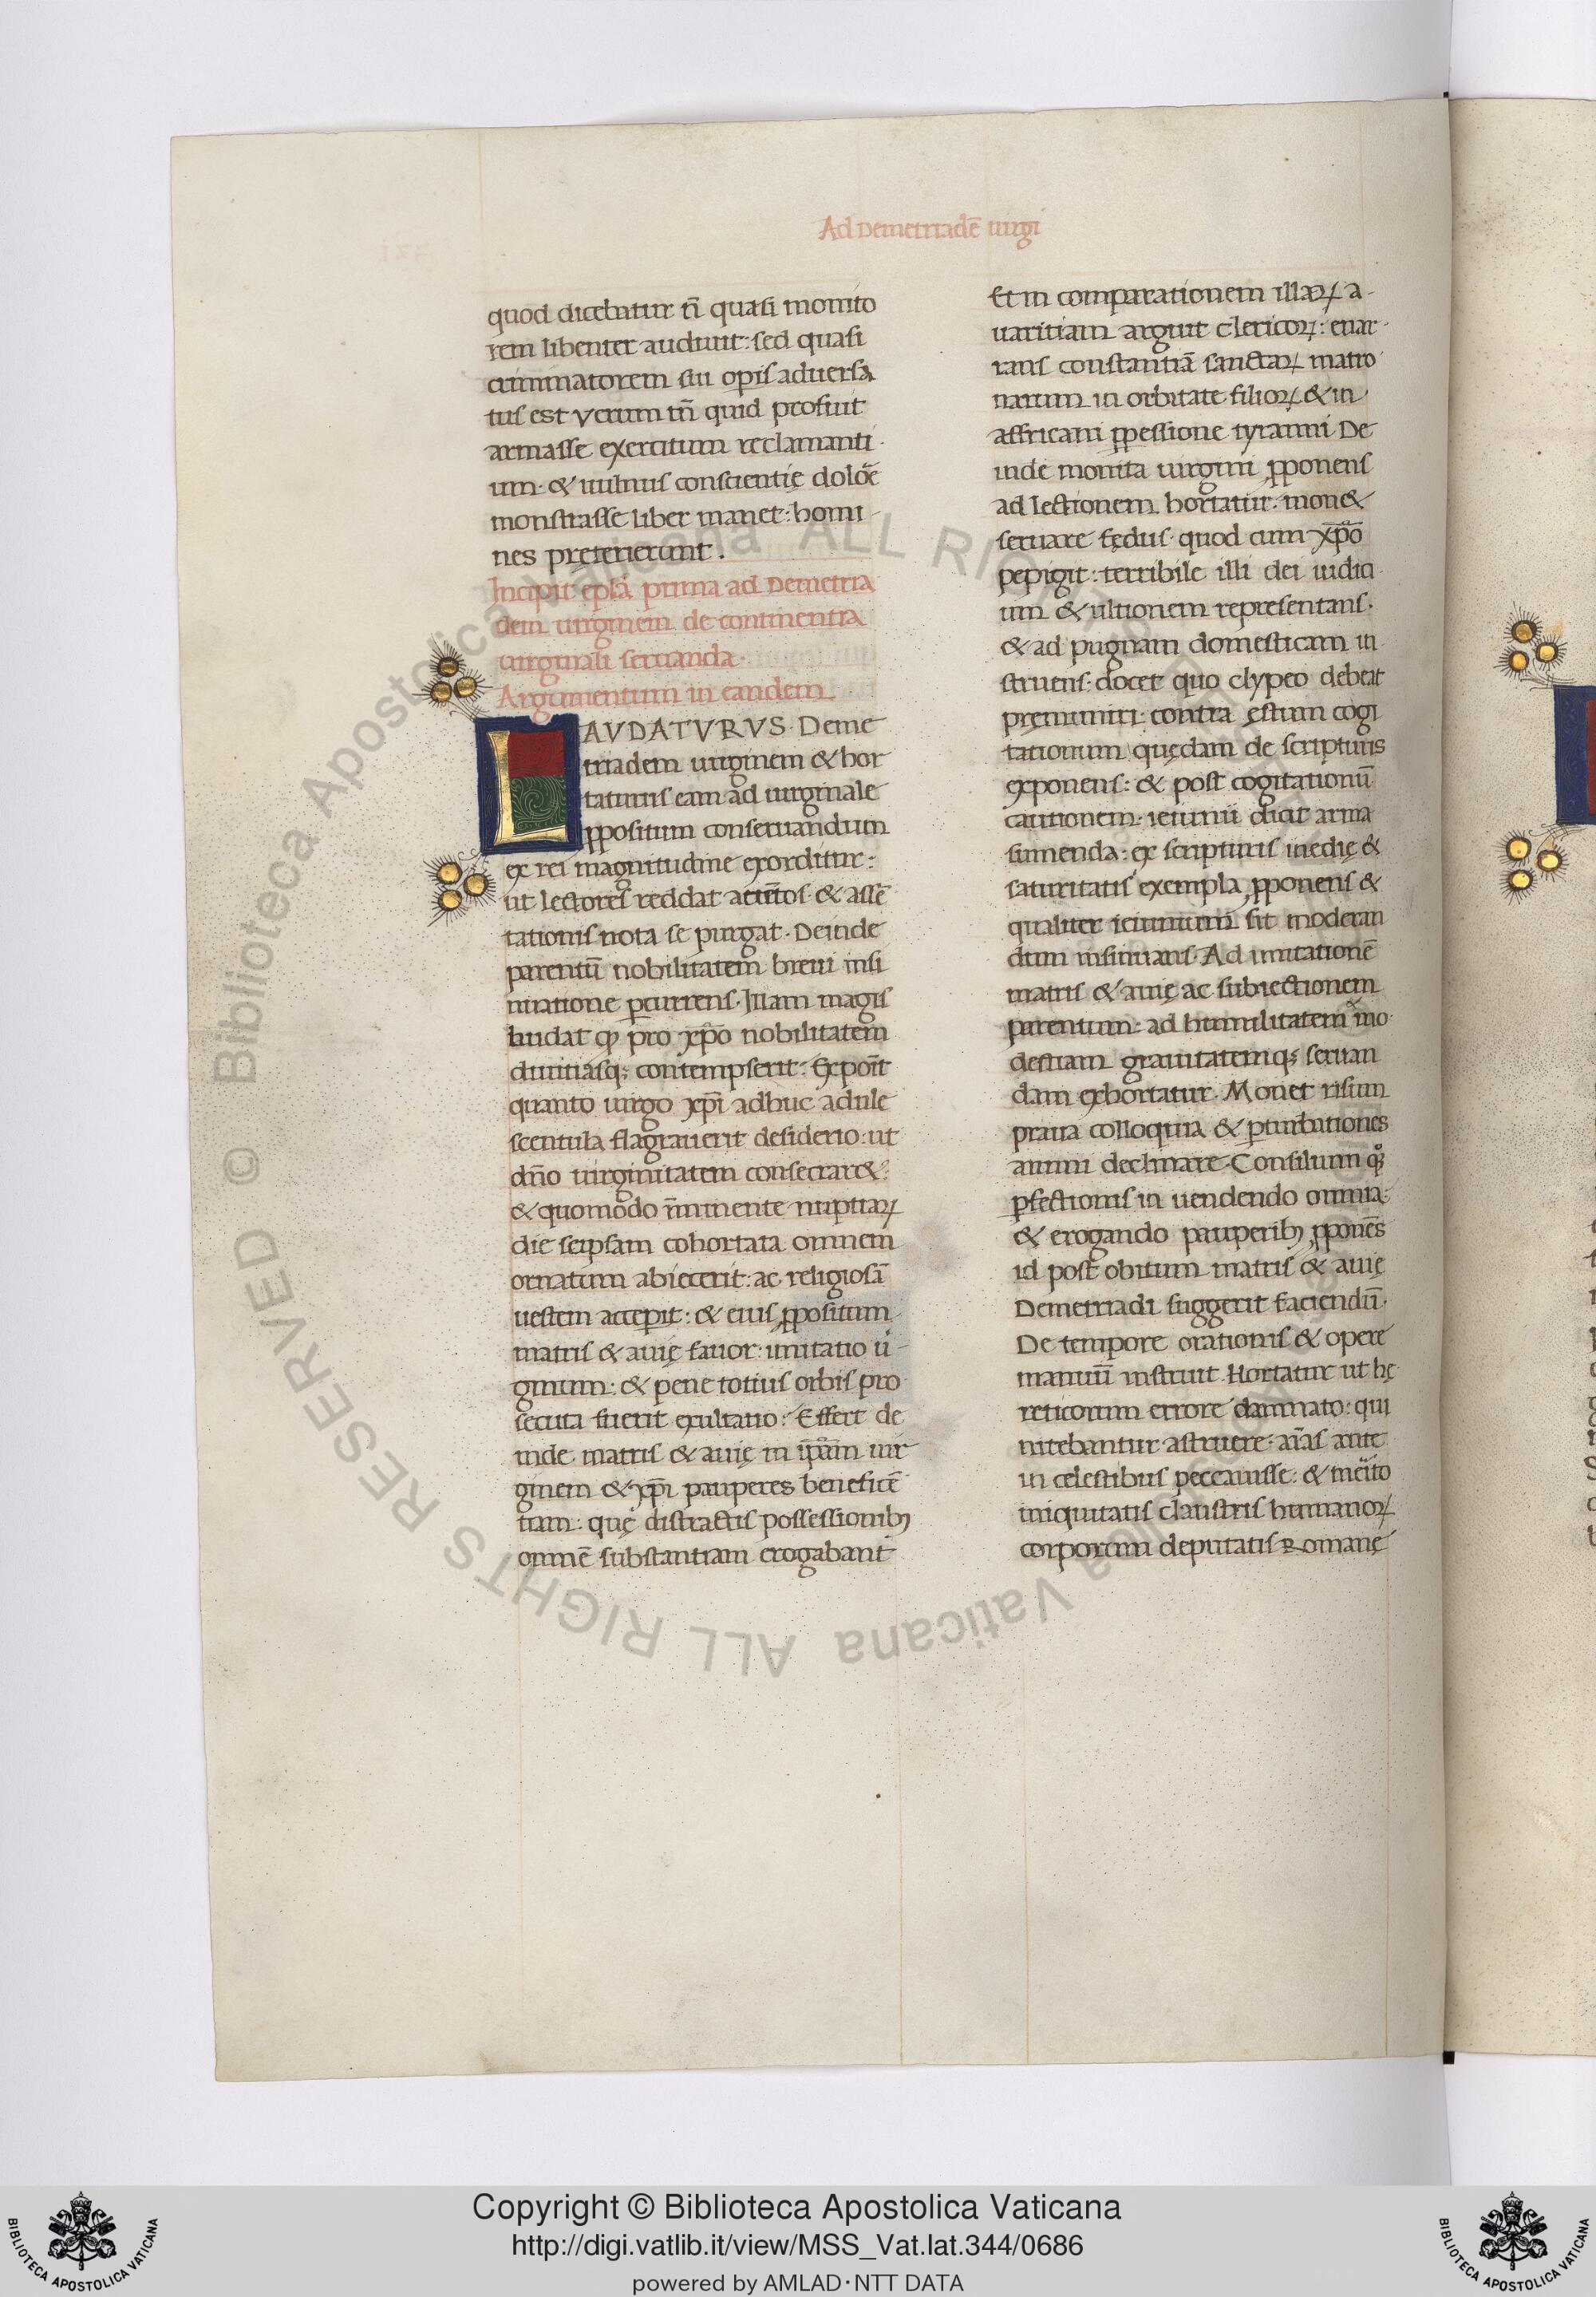 Ad Demetriadē uirgi
quod dicebatur n̄ quasi monito
rem libenter audiuit: sed quasi
criminatorem sui op̲is aduersa
tus est Verum tn̄ quid profuit
armasse exercitum reclamanti
um· & uulnus conscientię dolor̄e
monstrasse liber manet: homi
nes preterierunt.
Incipit epl̄a prima ad Demetria
dem uirginem de continentia
uirginali seruanda·
Argumentum in eandem
LAVDATVRVS· Deme
triadem uirginem & hor
taturus eam ad uirginale
ꝓpositum conseruandum
ex rei magnitudine exorditur:
ut lectores reddat atten̄tos· & assē
tationis nota se purgat· Deinde
parentū nobilitatem breui insi
nuatione ꝑcurrens· Illam magis
laudat ꝙ pro xp̄o nobilitatem
diuitiasq; contempserit: Expoīt
quanto uirgo xp̄i adhuc adule
scentula flagrauerit desiderio: ut
dn̄o uirginitatem consecrar&:
& quomodo īminente nuptiaꝝ
die seipsam cohortata omnem
ornatum abiecerit: ac religiosā
uestem acceperit: & eius ꝓpositum
matris & auię fauor: imitatio uͥ
ginum: & pene totius orbis pro
secuta fuerit exultatio: Effert de
inde matris & auię in ip̄am uir
ginem & xp̄i pauperes beneficē
tiam: quę distractis possessionibꝫ
omnē substantiam erogabant
Et in comparationem illaꝝ a
uaritiam arguit clericoꝝ: enar
rans constantiā sanctaꝝ matro
narum in orbitate filioꝝ & in
affricani ꝑpessione tyranni De
inde monita uirgini ꝓponens
ad lectionem hortatur· mon&
seruare fędus· quod cum xp̄o
pepigit: terribile illi dei iudici
um & ultionem representans·
& ad pugnam domesticam in
struens: docet quo clypeo debeat
pręmuniri: contra ęstum cogi
tationum quędam de scripturis
exponens: & post cogitationū
cautionem· ieiunii dicit arma
sumenda: ex scripturis inedię &
saturitatis exempla ꝓponens &
qualiter ieiunium sit moderan
dum insinuans· Ad imitationē
matris & auię ac subiectionem
parentum: ad humilitatem mo
destiam grauitatemq; seruan
dam exhortatur· Monet risum
praua colloquia & ꝑturbationes
animi declinare· Consilium qͦꝫ
ꝑfectionis in uendendo omnia:
& erogando pauperibꝫ ꝓponēs
id post obitum matris & auię
Demetriadi suggerit faciendū·
De tempore orationis & opere
manuū instruit· Hortatur ut hę
reticorum errore damnato: qui
nitebantur astruere: aīas ante
in celestibus peccauisse: & mer̄ito
iniquitatis claustris humanoꝝ
corporum deputatis Romanę
© Biblioteca Apostolica Vaticana ALL RIGHTS RESERVED
Copyright © Biblioteca Apostolica Vaticana
http://digi.vatlib.it/view/MSS_Vat.lat.344/0686
powered by AMLAD·NTT DATA
BIBLIOTECA APOSTOLICA VATICANA
BIBLIOTECA APOSTOLICA VATICANA